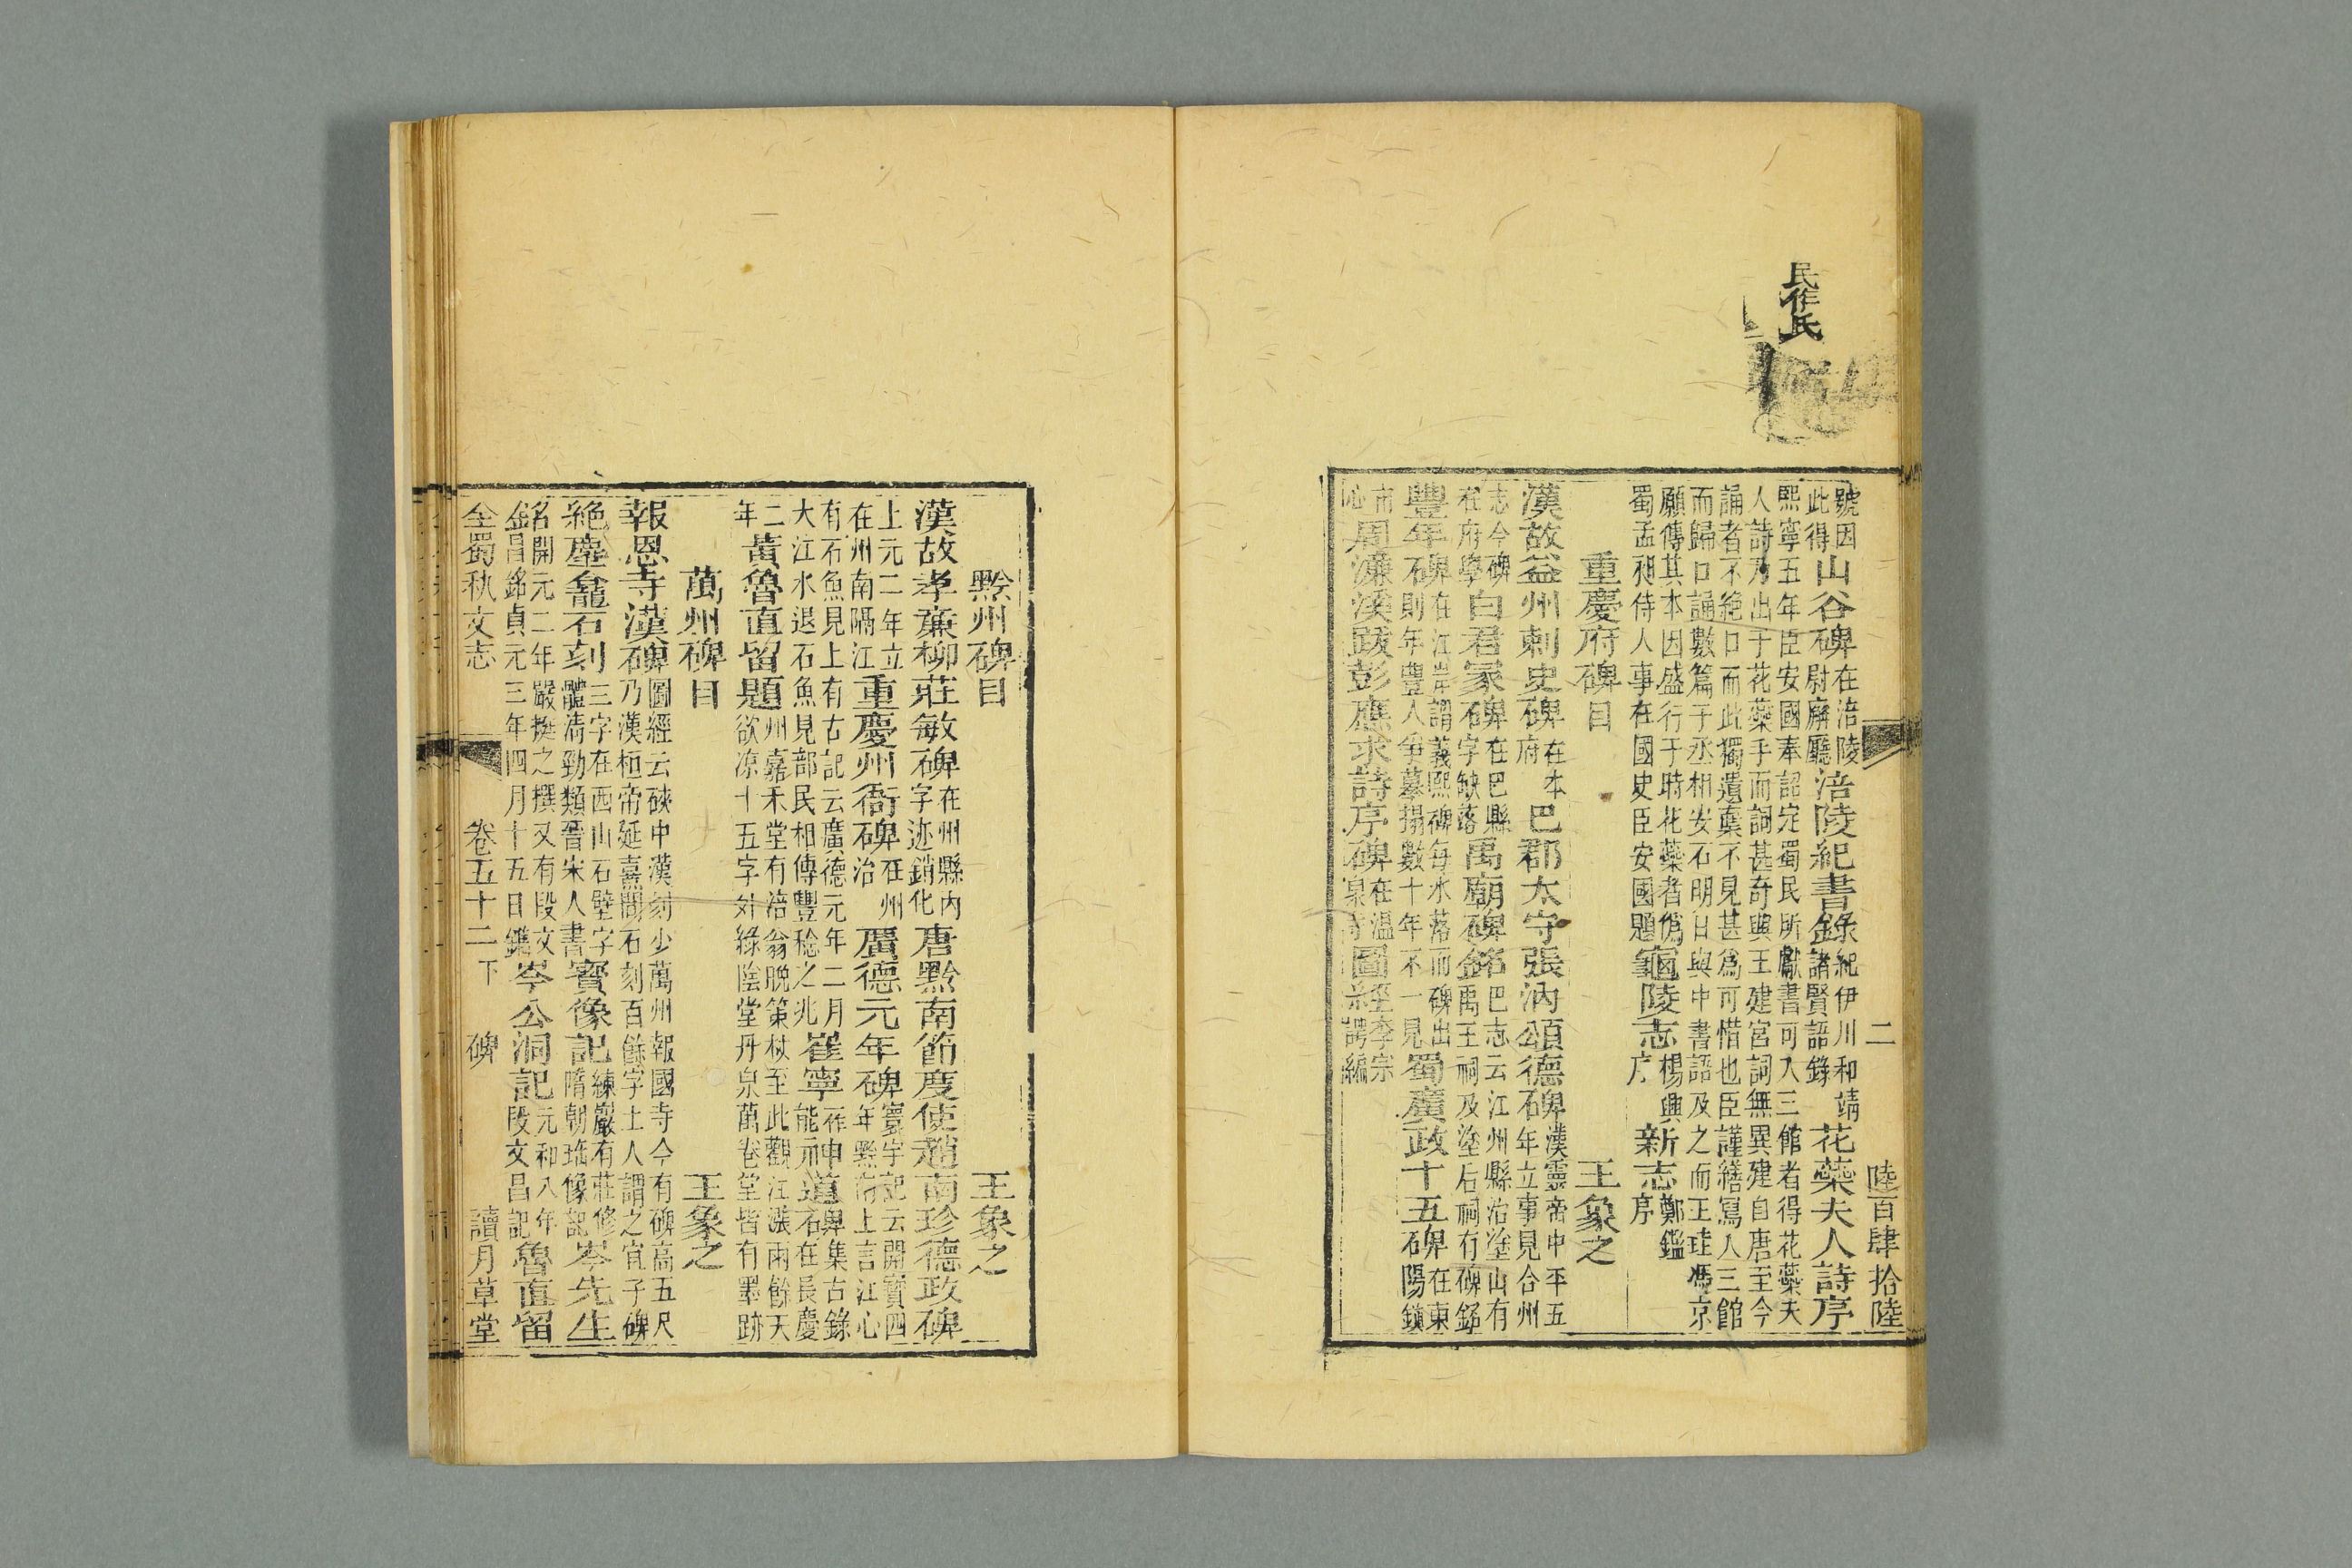 民作氏
二 陸百肆拾陸
號因此得山谷碑在涪陵尉廨廳涪陵紀書錄紀伊川和靖諸賢語錄花蘂夫人詩序
熙寧五年臣安國奉詔定蜀民所獻書可入三館者得花蘂夫
人詩乃出于花蘂手而詞甚奇與王建宮詞無異建自唐至今
誦者不絕口而此獨遺棄不見甚為可惜也臣謹繕寫入三館
而歸口誦數篇于丞相安石明日與中書語及之而王珪馮京
願傳其本因盛行于時花蘂者偽
蜀孟昶侍人事在國史臣安國題龜陵志楊興序新志鄭鑑序
重慶府碑目 王象之
漢故益州刺史碑在本府巴郡太守張汭頌德碑漢靈帝中平五
石年立事見合州
志今碑在府學白君冢碑在巴縣石字缺落禹廟碑銘巴志云江州縣治塗山有
禹王祠及塗后祠有碑銘
豐年碑在江岸謂義熙碑每水落而碑出
石則年豐人爭摹搨數十年不一見蜀廣政十五碑在東
陽鎮
市心周濂溪跋彭應求詩序碑在溫泉寺圖經李宗諤編
黔州碑目 王象之
漢故孝廉柳莊敏碑在州縣內字迹銷化唐黔南節度使趙南珍德政碑
上元二年立在州南隔江重慶州衙碑在州治廣德元年碑寰宇記云開寶四
年黔南上言江心
有石魚見上有古記云廣德元年二月
大江水退石魚見部民相傳豐稔之兆崔寧作申能元道碑集古錄
石在長慶
二年黃魯直留題州嘉禾堂有涪翁晚策杖至此觀江漲雨餘天
欲涼十五字外綠陰堂丹泉萬卷堂皆有墨跡
萬州碑目 王象之
報恩寺漢碑圖經云硤中漢刻少萬州報國寺今有碑高五尺
乃漢桓帝延熹間石刻百餘字土人謂之宜子碑
絕塵龕石刻三字在西山石壁字體清勁類晉宋人書寶像記練巖有莊修隋朝瑞像記岑先生
名開元二年嚴挺之撰又有段文
銘昌銘貞元三年四月十五日鐫岑公洞記元和八年段文昌記魯直留
全蜀秇文志 卷五十二下 碑 讀月草堂